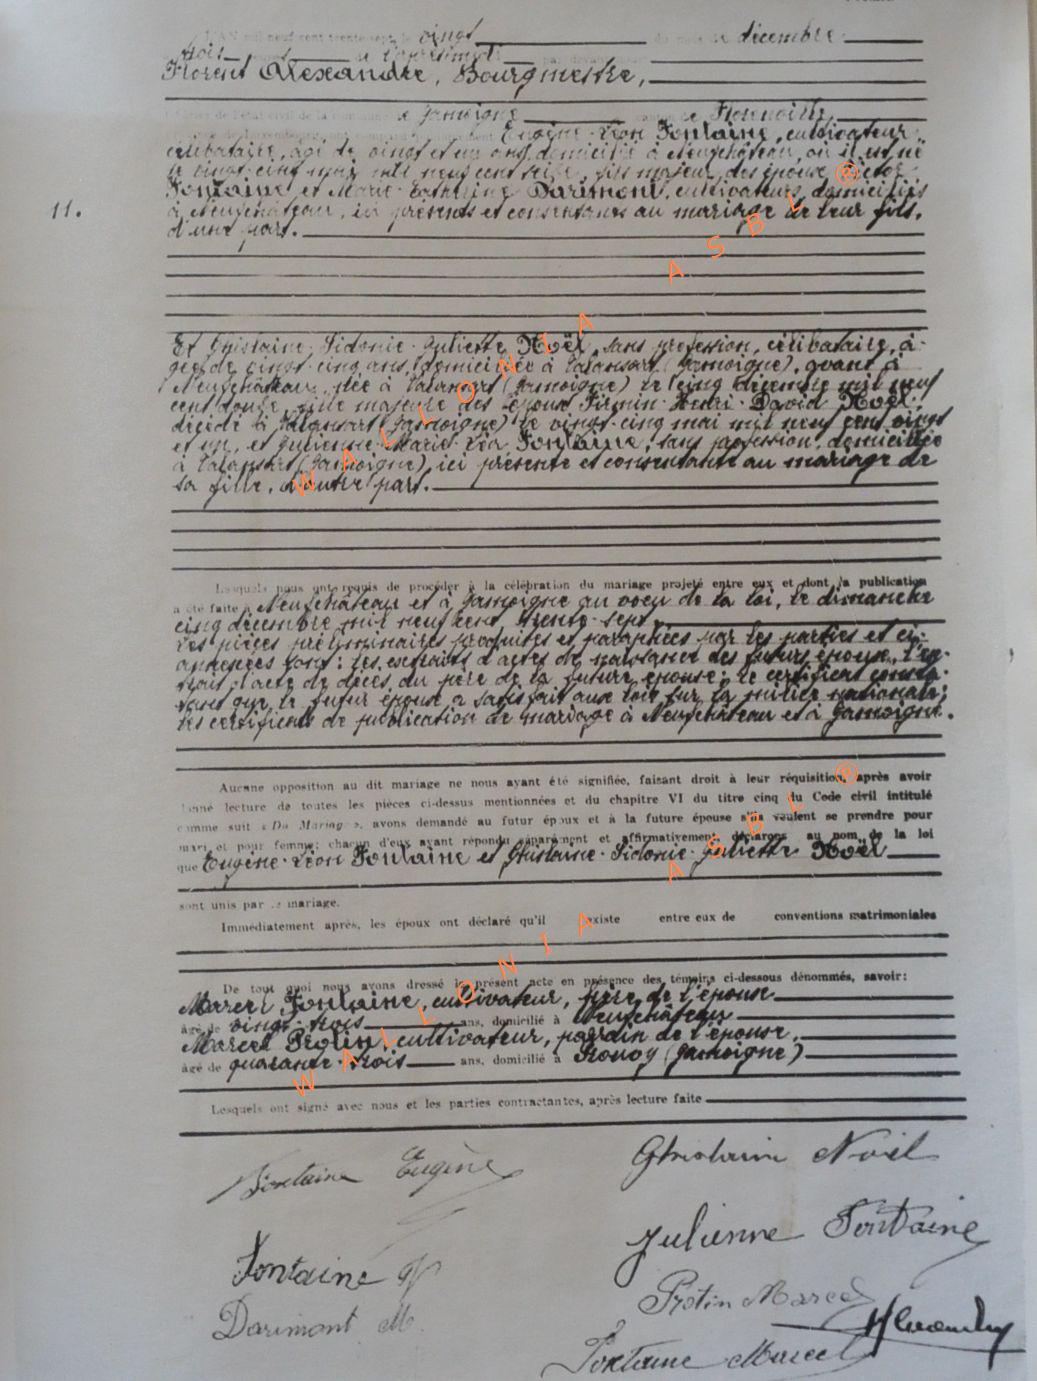 L'AN mil neuf cent trente-sept, le vingt du mois de décembre
trois heures de l'après-midi par devant
Florent Alexandre, Bourgmestre,
de Jamoigne de Florenville
Eugène-Léon Fontaine, cultivateur
célibataire, âgé de vingt et un ans, domicilié à Neufchâteau, où il est né
le vingt-cinq mil neuf cent seize, fils majeur des époux Victor
Fontaine et Marie-Catherine Darimont, cultivateurs, domiciliés
11.
à Neufchâteau, ici présents et consentants au mariage de leur fils,
d'une part.
Et Ghislaine-Sidonie-Juliette Noël, sans profession, célibataire, â-
gée de vingt-cinq ans, domiciliée à Valansart (Jamoigne), avant à
Neufchâteau, née à Valansart (Jamoigne) le cinq décembre mil neuf
cent douze, fille majeure des époux Firmin-Henri-David Noël,
décédé à Valansart (Jamoigne) le vingt-cinq mai mil neuf cent vingt
et un, et Julienne-Marie-Léa Fontaine, sans profession, domiciliée
à Valansart (Jamoigne), ici présente et consentante au mariage de
sa fille, d'autre part.
Lesquels nous ont requis de procéder à la célébration du mariage projeté entre eux et dont la publication
a été faite à Neufchâteau et à Jamoigne au voeu de la loi, le dimanche
cinq décembre mil neuf cent trente-sept.
Les pièces préliminaires produites et paraphées par les parties et ci-
annexées sont : les extraits d'actes de naissance des futurs époux, l'ex-
trait d'acte de décès du père de la future épouse; le certificat consta-
tant que le futur époux a satisfait aux lois sur la milice nationale;
les certificats de publication de mariage à Neufchâteau et à Jamoigne.
Aucune opposition au dit mariage ne nous ayant été signifiée, faisant droit à leur réquisition, après avoir
donné lecture de toutes les pièces ci-dessus mentionnées et du chapitre VI du titre cinq du Code civil intitulé
comme suit « Du Mariage », avons demandé au futur époux et à la future épouse s'ils veulent se prendre pour
mari et pour femme; chacun d'eux ayant répondu séparément et affirmativement, déclarons au nom de la loi
que Eugène-Léon Fontaine et Ghislaine-Sidonie-Juliette Noël
sont unis par le mariage.
Immédiatement après, les époux ont déclaré qu'il existe entre eux de conventions matrimoniales
De tout quoi nous avons dressé le présent acte en présence des témoins ci-dessous dénommés, savoir :
Marcel Fontaine, cultivateur, frère de l'époux
âgé de vingt-trois ans, domicilié à Neufchâteau
Marcel Protin, cultivateur, parrain de l'épouse,
âgé de quarante-trois ans, domicilié à Prouvy (Jamoigne)
Lesquels ont signé avec nous et les parties contractantes, après lecture faite
Fontaine Eugène
Ghislaine Noël
Julienne Fontaine
Fontaine V
Protin Marcel
Darimont M.
Alexandre
Fontaine Marcel
WALLONIA ASBL ®
WALLONIA ASBL ®